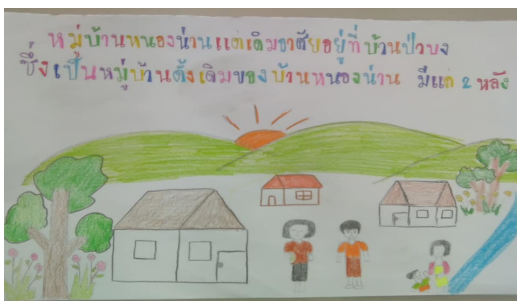 หมู่บ้านหนองน่านแต่เดิมอาศัยอยู่ที่บ้านป่าบง
ซึ่งเป็นหมู่บ้านดั้งเดิมของบ้านหนองน่าน มีแค่ 2 หลัง